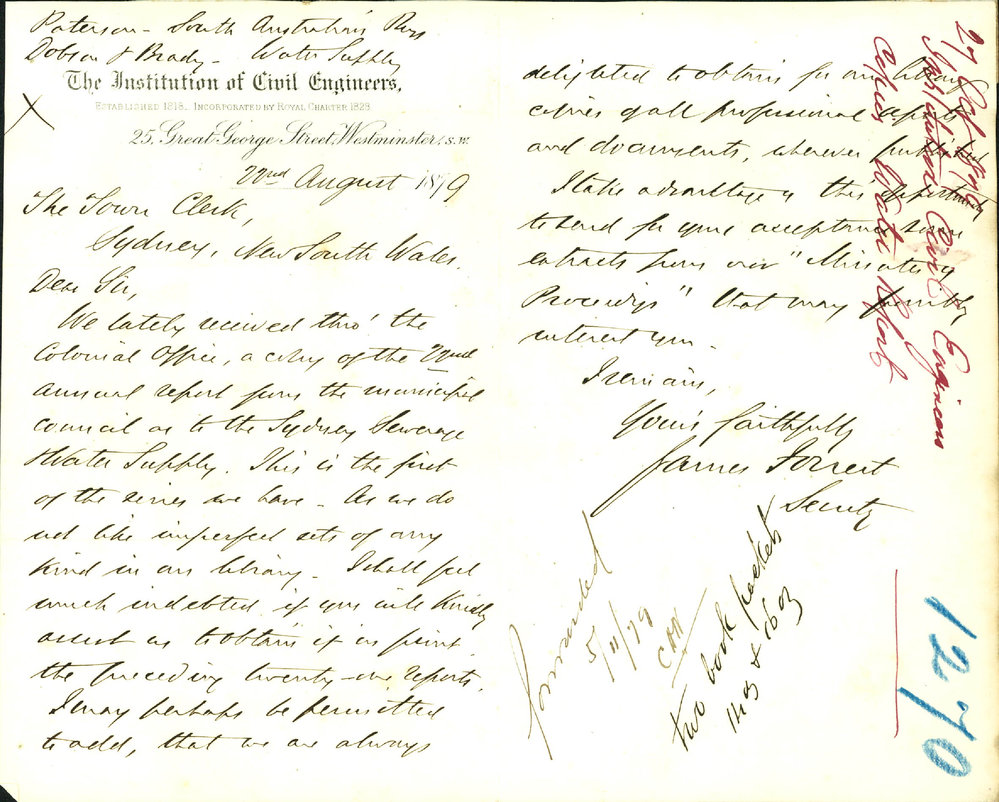 Paterson - South Australian Rys
Dobson & Brady - Water Supply
The Institution of Civil Engineers,
ESTABLISHED 1818. INCORPORATED BY ROYAL CHARTER 1828.
25, Great George Street, Westminster, S.W.
X
22nd August 1879
The Town Clerk,
Sydney, New South Wales.
Dear Sir,
We lately received thro' the
Colonial Office, a copy of the 22nd
annual report from the municipal
council as to the Sydney Sewerage
& Water Supply. This is the first
of the series we have - As we do
not like imperfect sets of any
kind in our library - I shall feel
much indebted if you will kindly
assist us to obtain if in print
the preceding twenty-one reports.
I may perhaps be permitted
to add, that we are always
delighted to obtain for our library
copies of all professional reports
and documents, wherever published
I take advantage of this opportunity
to send for your acceptance some
extracts from our "Minutes of
Proceedings" that may possibly
interest you -
I remain,
Yours faithfully
James Forrest
Secrety
forwarded
5/11/79
two book packets
1270
Institution Civil Engineers
Copies Water Report